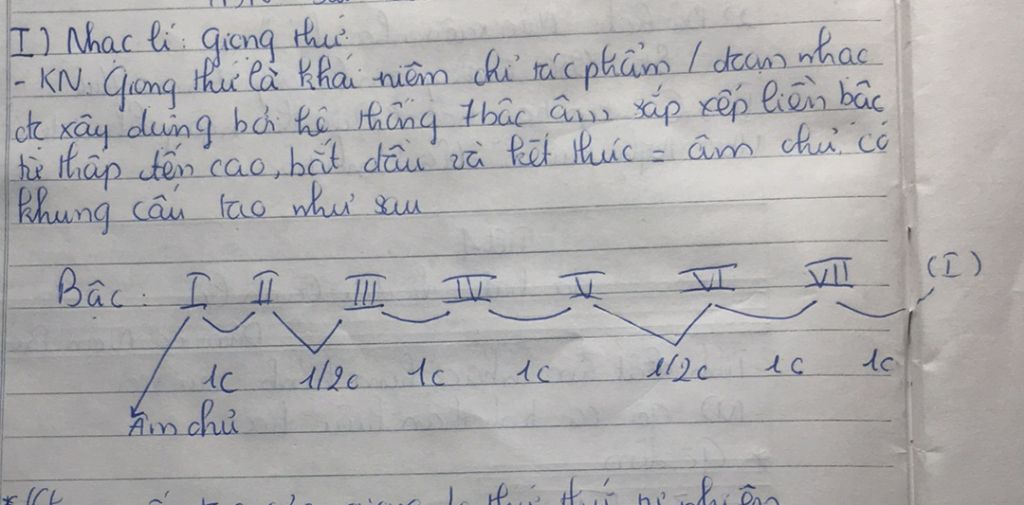 I) Nhạc lí: Giọng thứ
- KN: Giọng thứ là khái niệm chỉ tác phẩm / đoạn nhạc
đc xây dựng bởi hệ thống 7 bậc âm sắp xếp liền bậc
từ thấp đến cao, bắt đầu và kết thúc = âm chủ. Có
khung cấu tạo như sau
Bậc: I II III IV V VI VII (I)
1c 1/2c 1c 1c 1/2c 1c 1c
Âm chủ